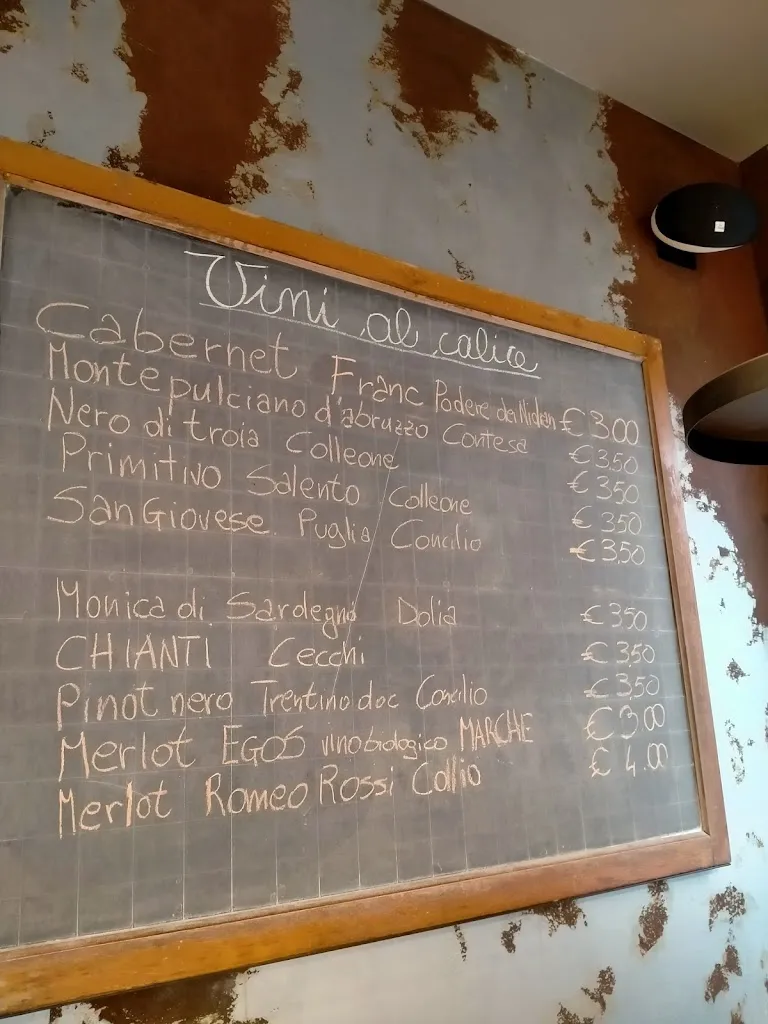 Vini al calice
Cabernet Franc Podere dei € 3.00
Montepulciano d'abruzzo Contesa € 3,50
Nero di troia Colleone € 3,50
Primitivo Salento Colleone € 3,50
SanGiovese Puglia Concilio € 3,50
Monica di Sardegna Dolia € 3,50
CHIANTI Cecchi € 3,50
Pinot nero Trentino doc Concilio € 3,50
Merlot EGOS vino biologico MARCHE € 3.00
Merlot Romeo Rossi Collio € 4.00